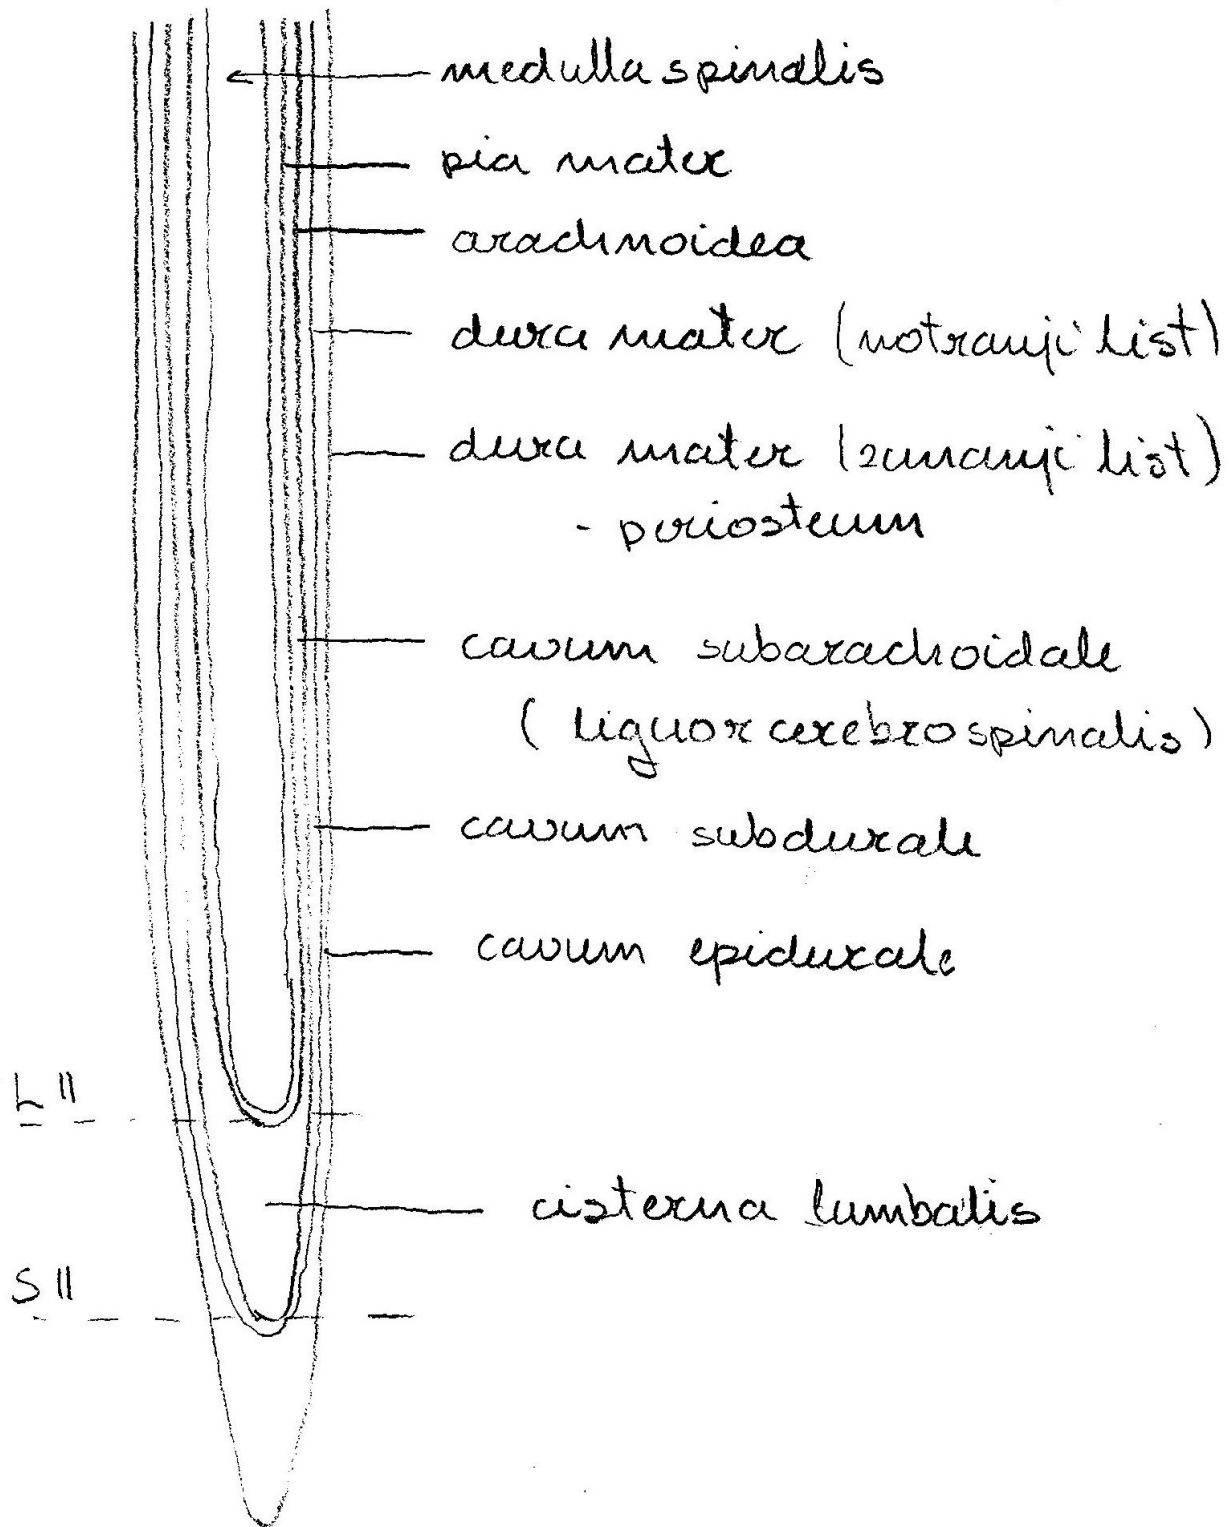 medulla spinalis
pia mater
arachnoidea
dura mater (notranji list)
dura mater (zunanji list)
- periosteum
cavum subarachoidale
(liquor cerebrospinalis)
cavum subdurale
cavum epidurale
L II
cisterna lumbalis
S II